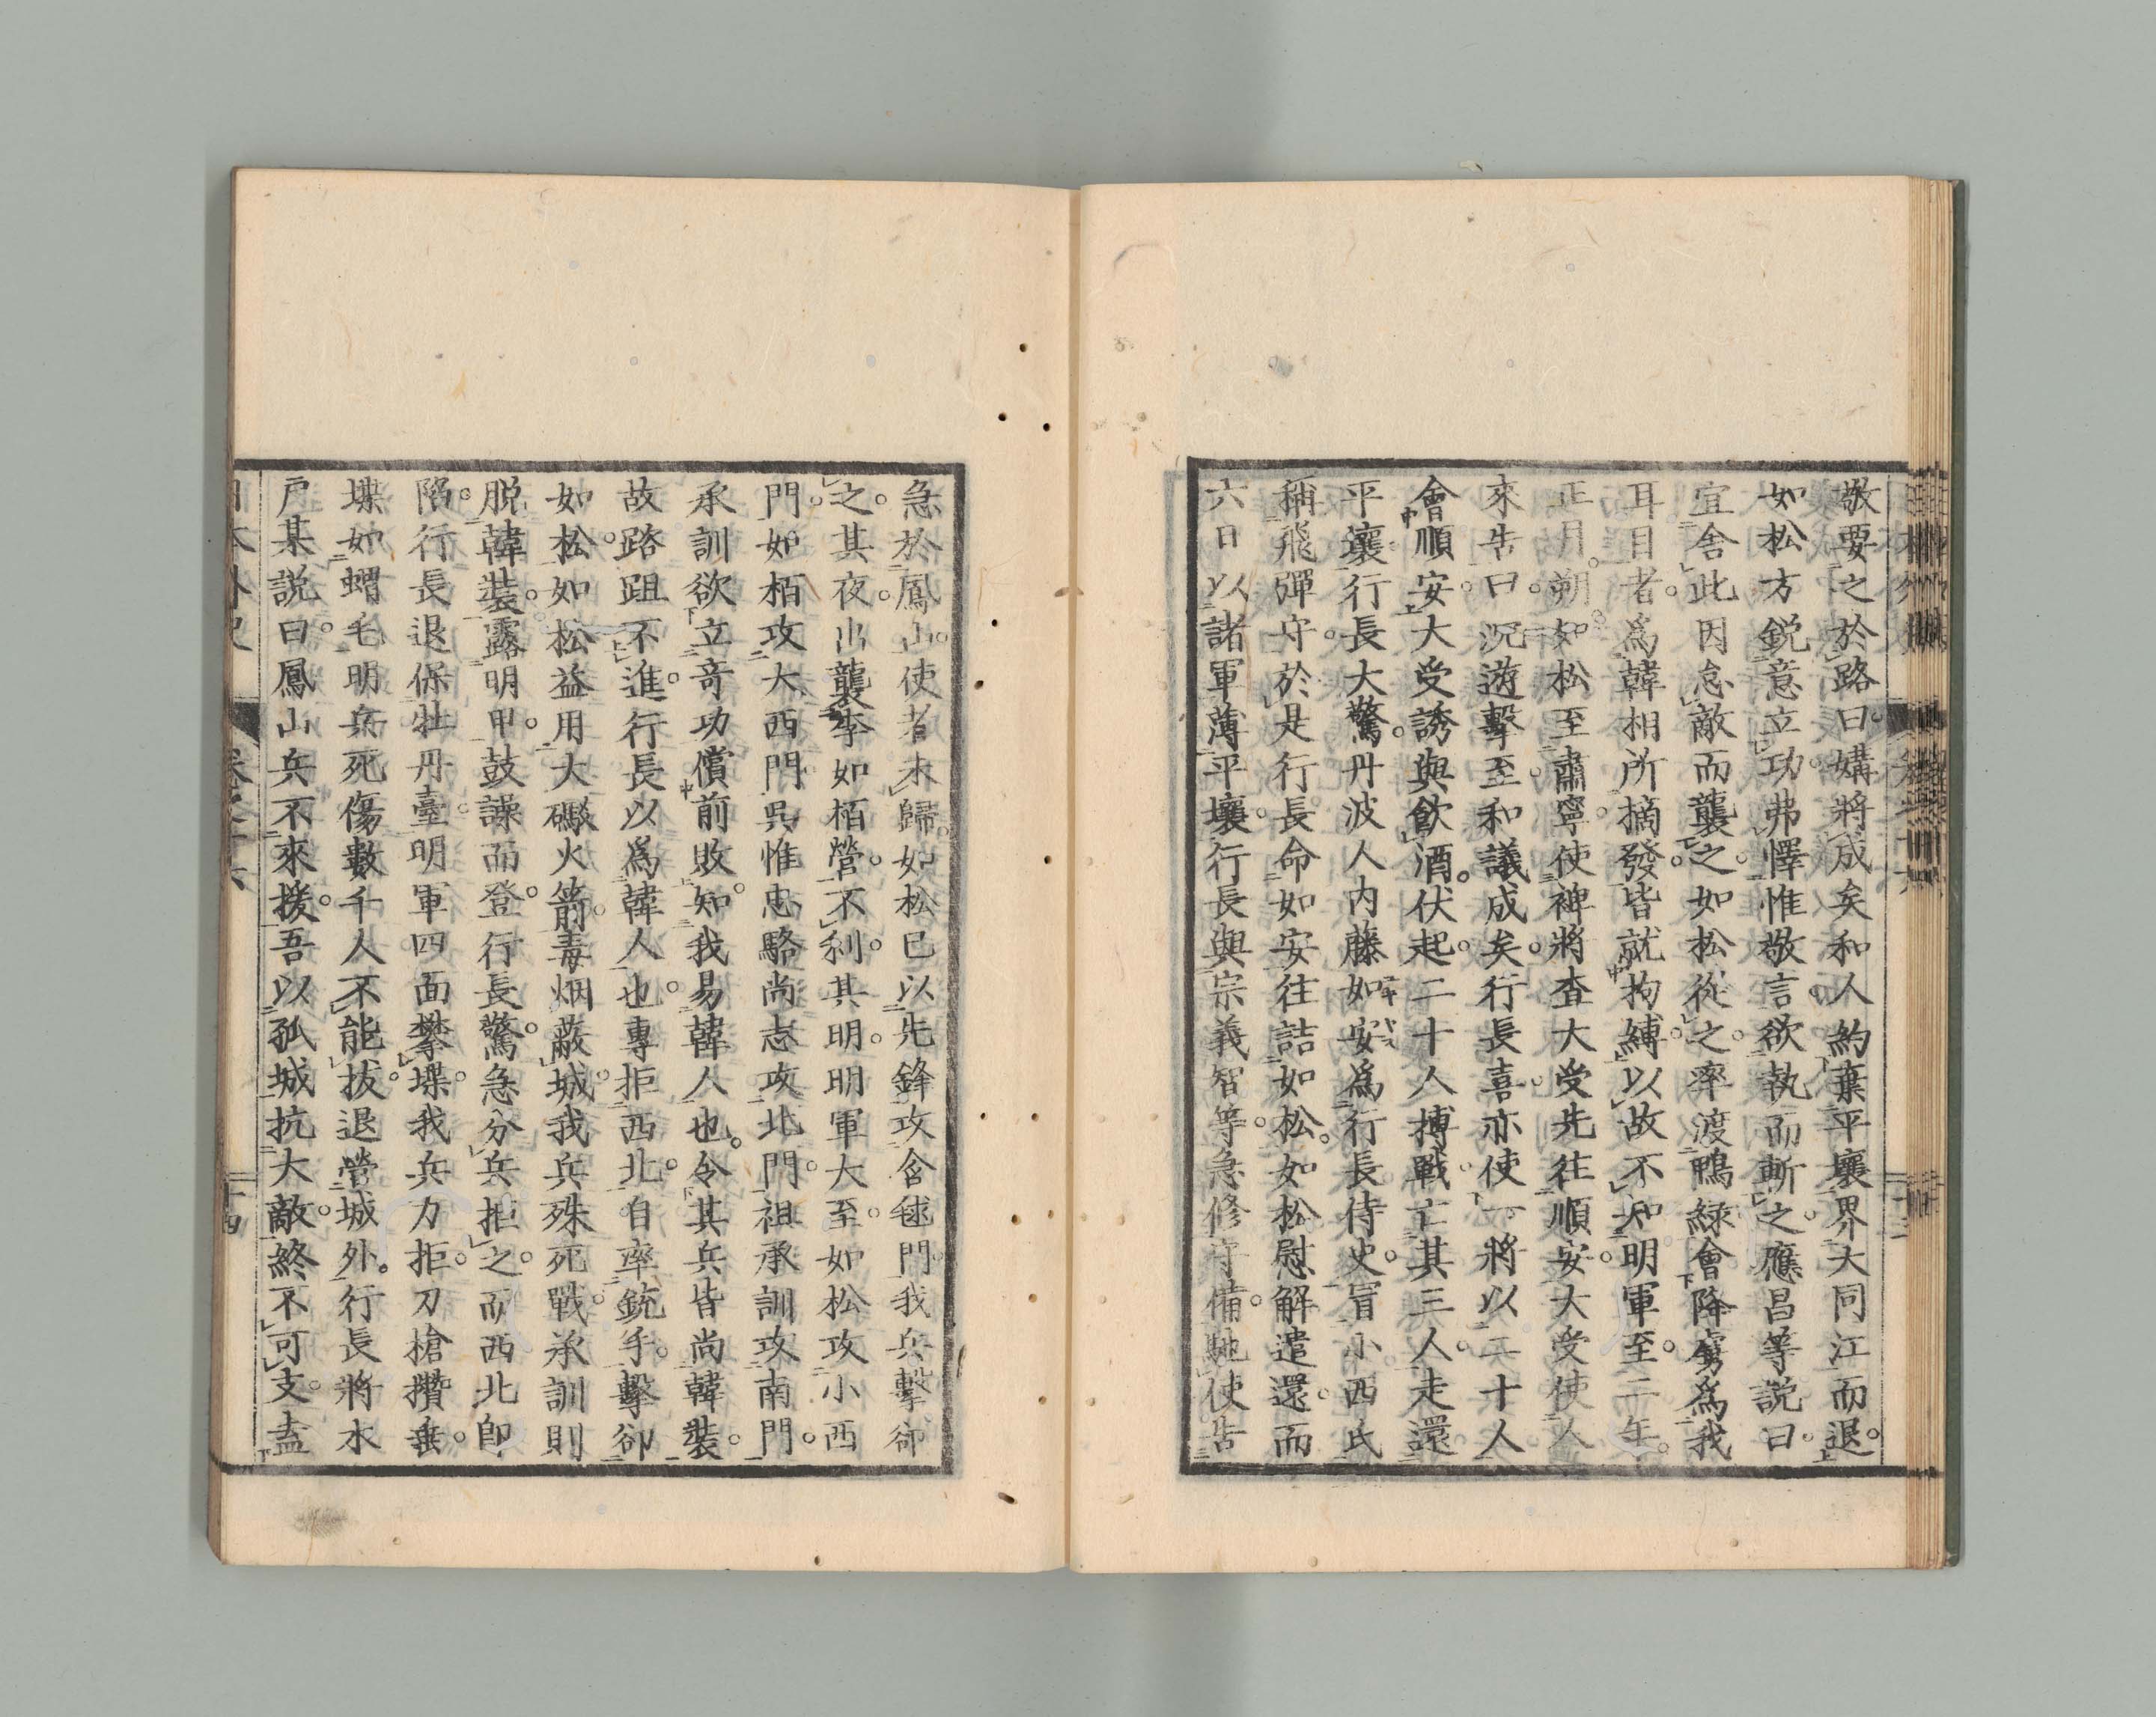 敬要之於路曰媾將成矣和人約棄平壤界大同江而退
如松方鋭意立功弗懌惟敬言欲執而斬之應昌等説曰
宜舍此因怠敵而襲之如松從之率渡鴨緑會降虜爲我
耳目者爲韓相所摘發皆就拘縛以故不知明軍至二年
正月朔如松至肅寧使裨將査大受先往順安大受使人
來告曰沉遊擊至和議成矣行長喜亦使一將以二十人
會順安大受誘與飮酒伏起二十人搏戰亡其三人走還
平壤行長大驚丹波人内藤如安爲行長侍史冐小西氏
稱飛彈守於是行長命如安往詰如松如松慰解遣還而
六日以諸軍薄平壤行長與宗義智等急修守備馳使告
急於鳳山使者未歸如松已以先鋒攻含毬門我兵擊卻
之其夜出襲李如栢營不利其明明軍大至如松攻小西
門如栢攻大西門呉惟忠駱尚志攻北門祖承訓攻南門
承訓欲立奇功償前敗知我易韓人也令其兵皆尚韓裝
故路跙不進行長以爲韓人也專拒西北自率銃手擊卻
如松如松益用大礟火箭毒烟蔽城我兵殊死戰承訓則
脱韓裝露明甲鼓譟而登行長驚急分兵拒之而西北卽
陷行長退保牡丹臺明軍四面攀堞我兵力拒刀槍攢垂
堞如蝟毛明兵死傷數千人不能拔退營城外行長將水
戸某説曰鳳山兵不來援吾以孤城抗大敵終不可支盍
日本外史 卷之十六 十四